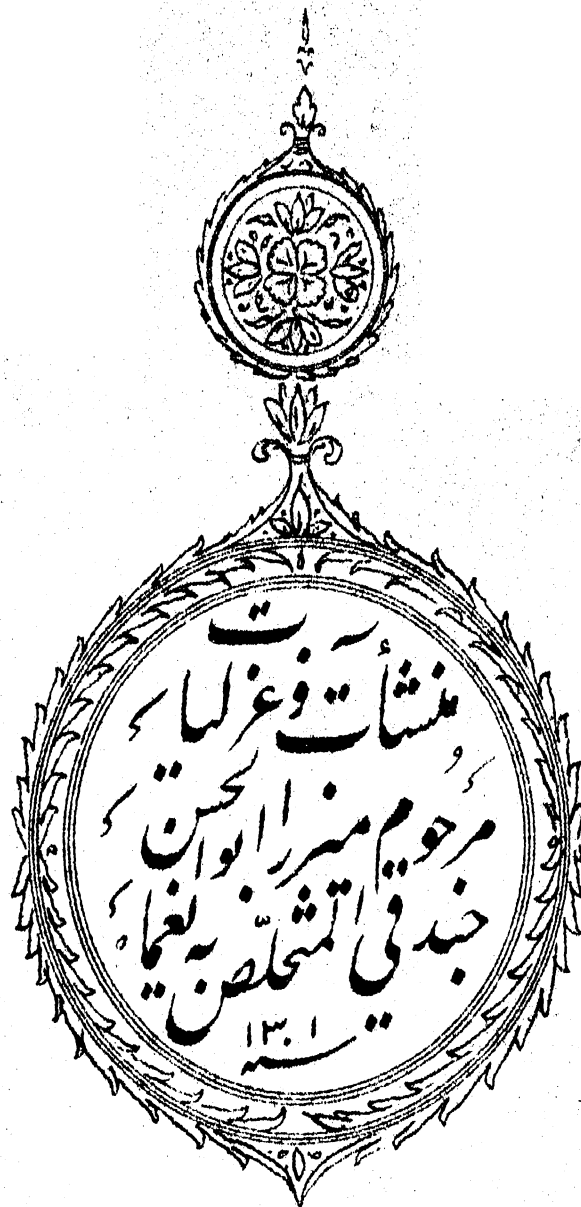 منشأت و غزلیات
مرحوم میرزا ابوالحسن
جندقی المتخلّص به یغماء
سنه ۱۳۰۱